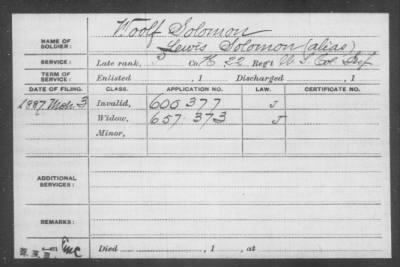 NAME OF SOLDIER: Woolf Solomon
Lewis Solomon (alias)
SERVICE: Late rank, Co. K 22 Reg't U S Col Inf
TERM OF SERVICE: Enlisted , 1 Discharged , 1
DATE OF FILING. CLASS. APPLICATION NO. LAW. CERTIFICATE NO.
1887 Mch. 3 Invalid, 600377 J
Widow, 657.373 J
Minor,
ADDITIONAL SERVICES:
REMARKS:
Died , 1 , at